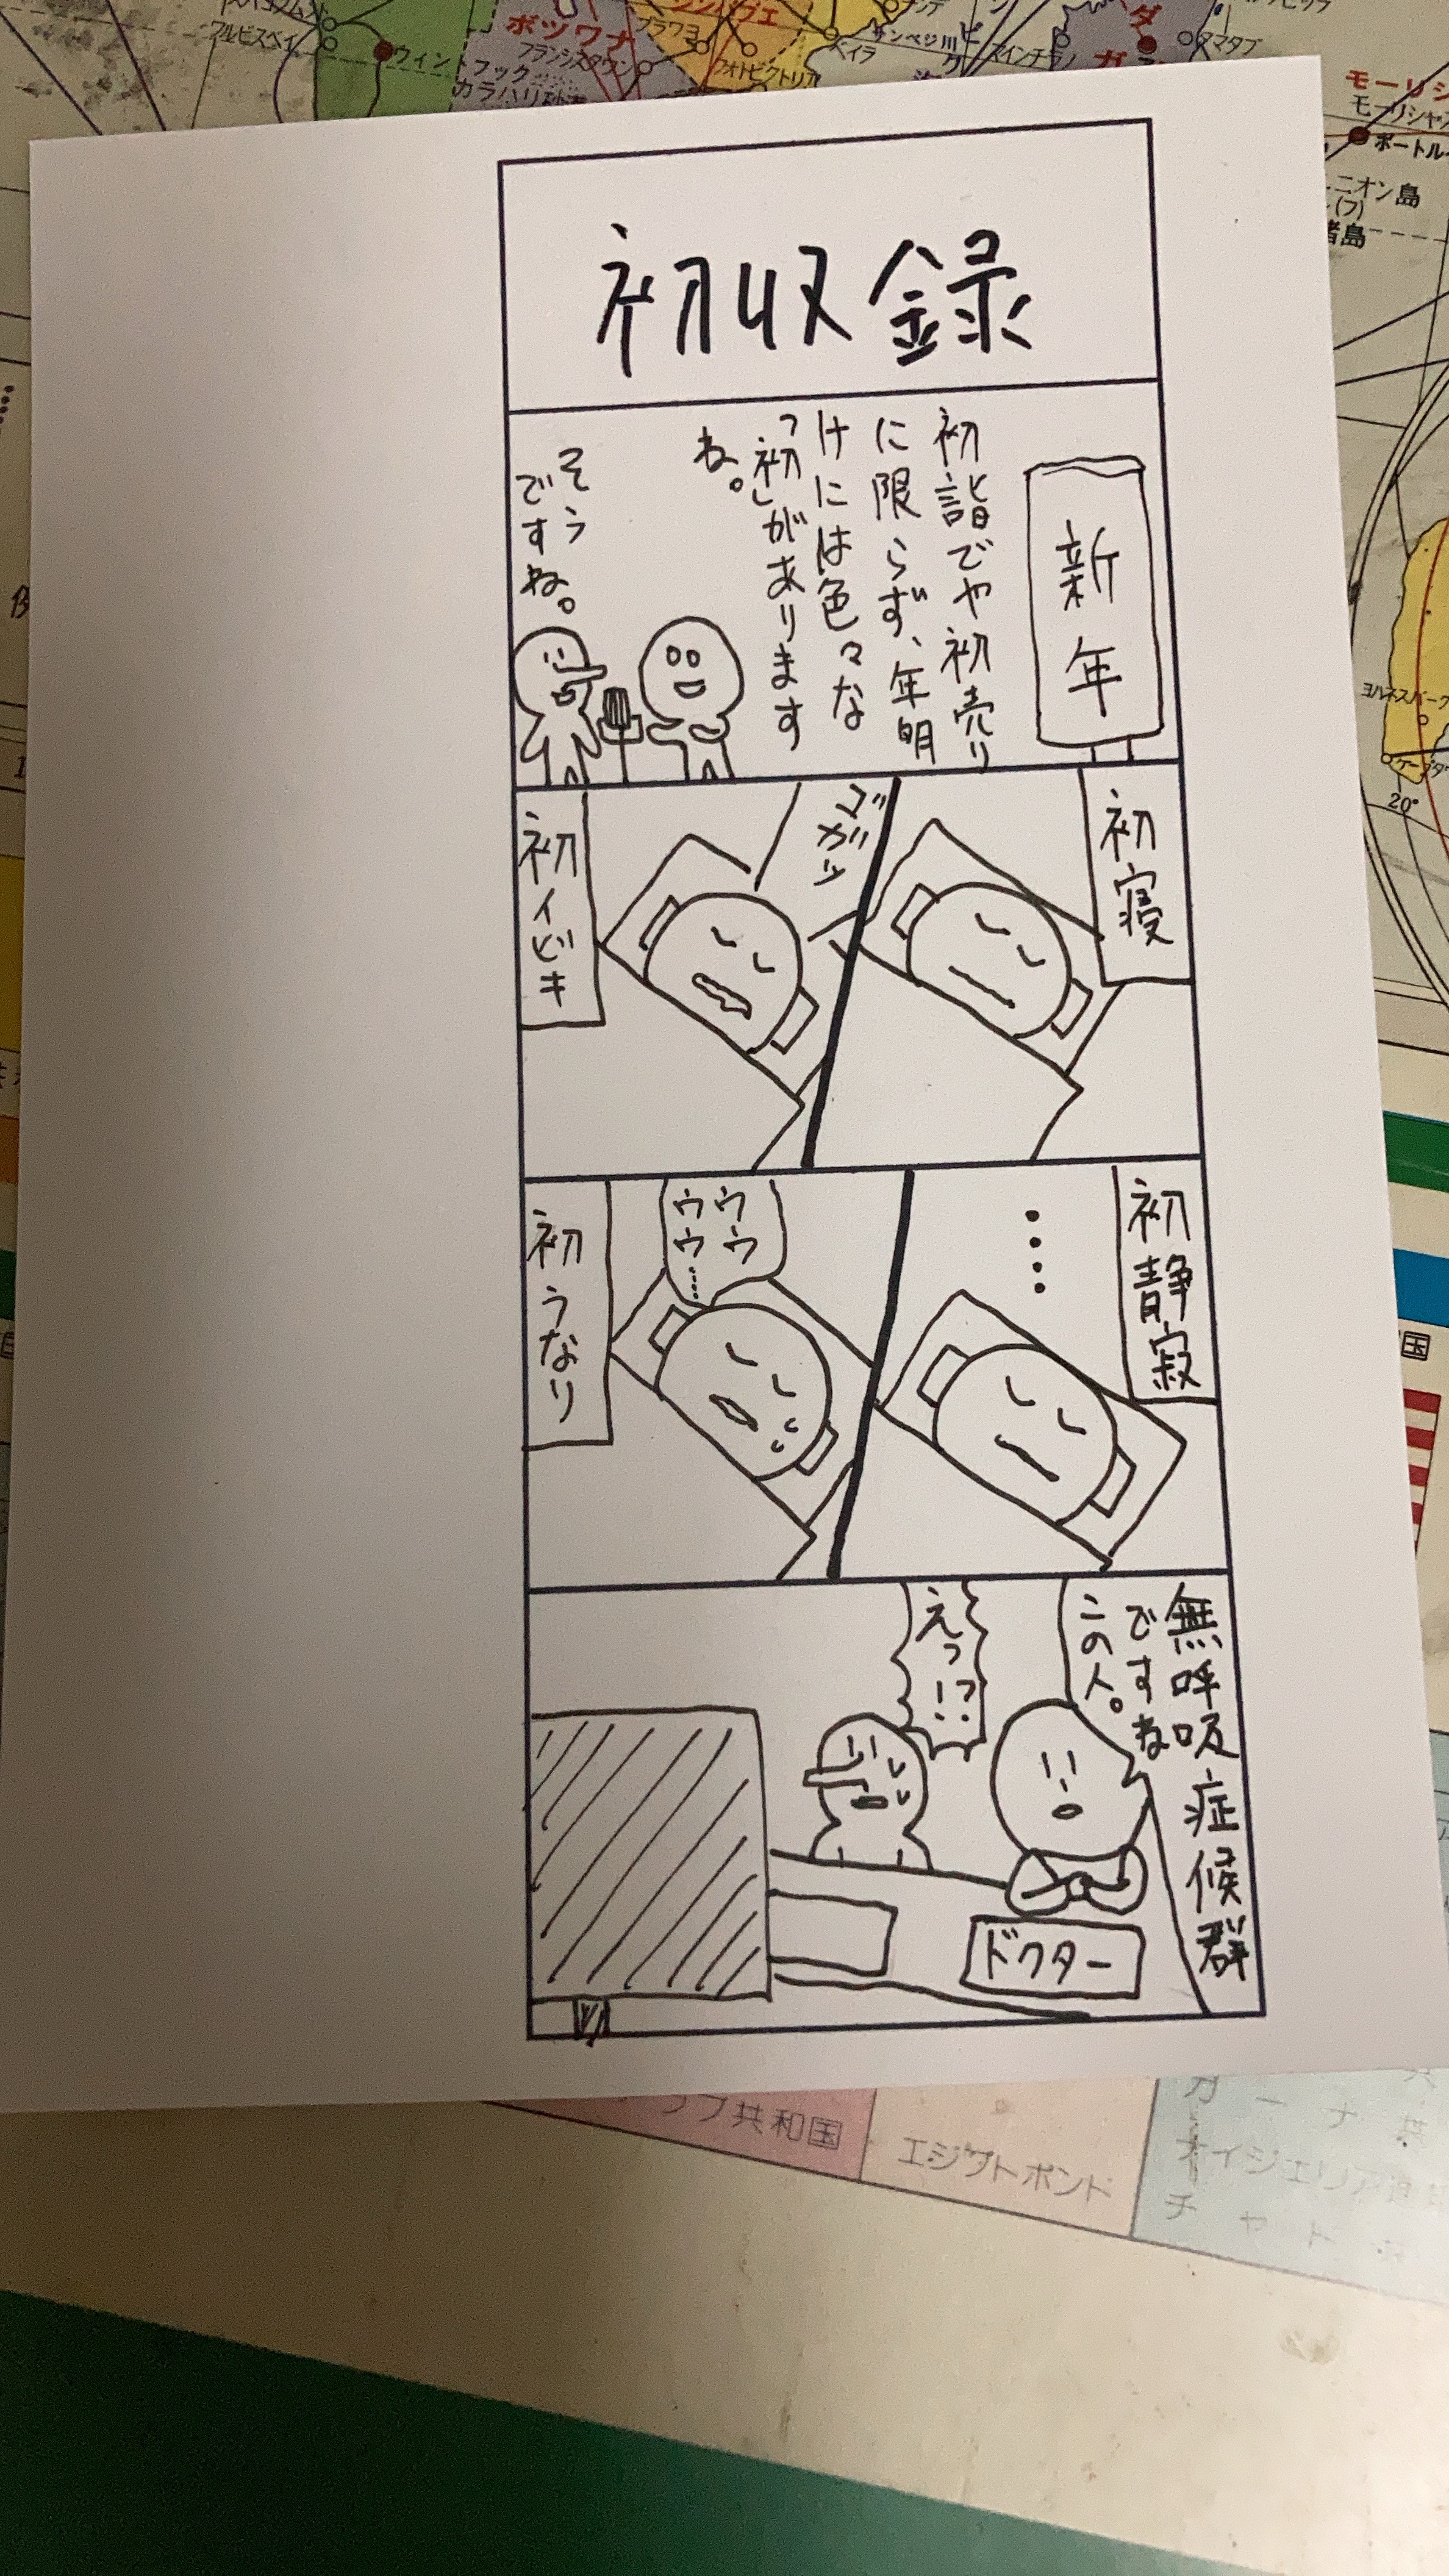 初収録
新年
初詣でや初売り
に限らず、年明
けには色々な
「初」があります
ね。
そう
ですね。
初寝
ゴガッ
初イビキ
初静寂
・・・・
ウウ
ウウ……
初うなり
無呼吸症候群
ですね
この人。
えっ!?
ドクター
ボツワナ
ブラワヨ
フランシスタウン
カラハリ
ベイラ
ウィントフック
マタブ
モーリシャ
ポートル
ニオン島
(フ)
諸島
ヨハネスバーグ
20°
国
共和国
エジプトポンド
ガーナ共
ナイジェリア
チャド